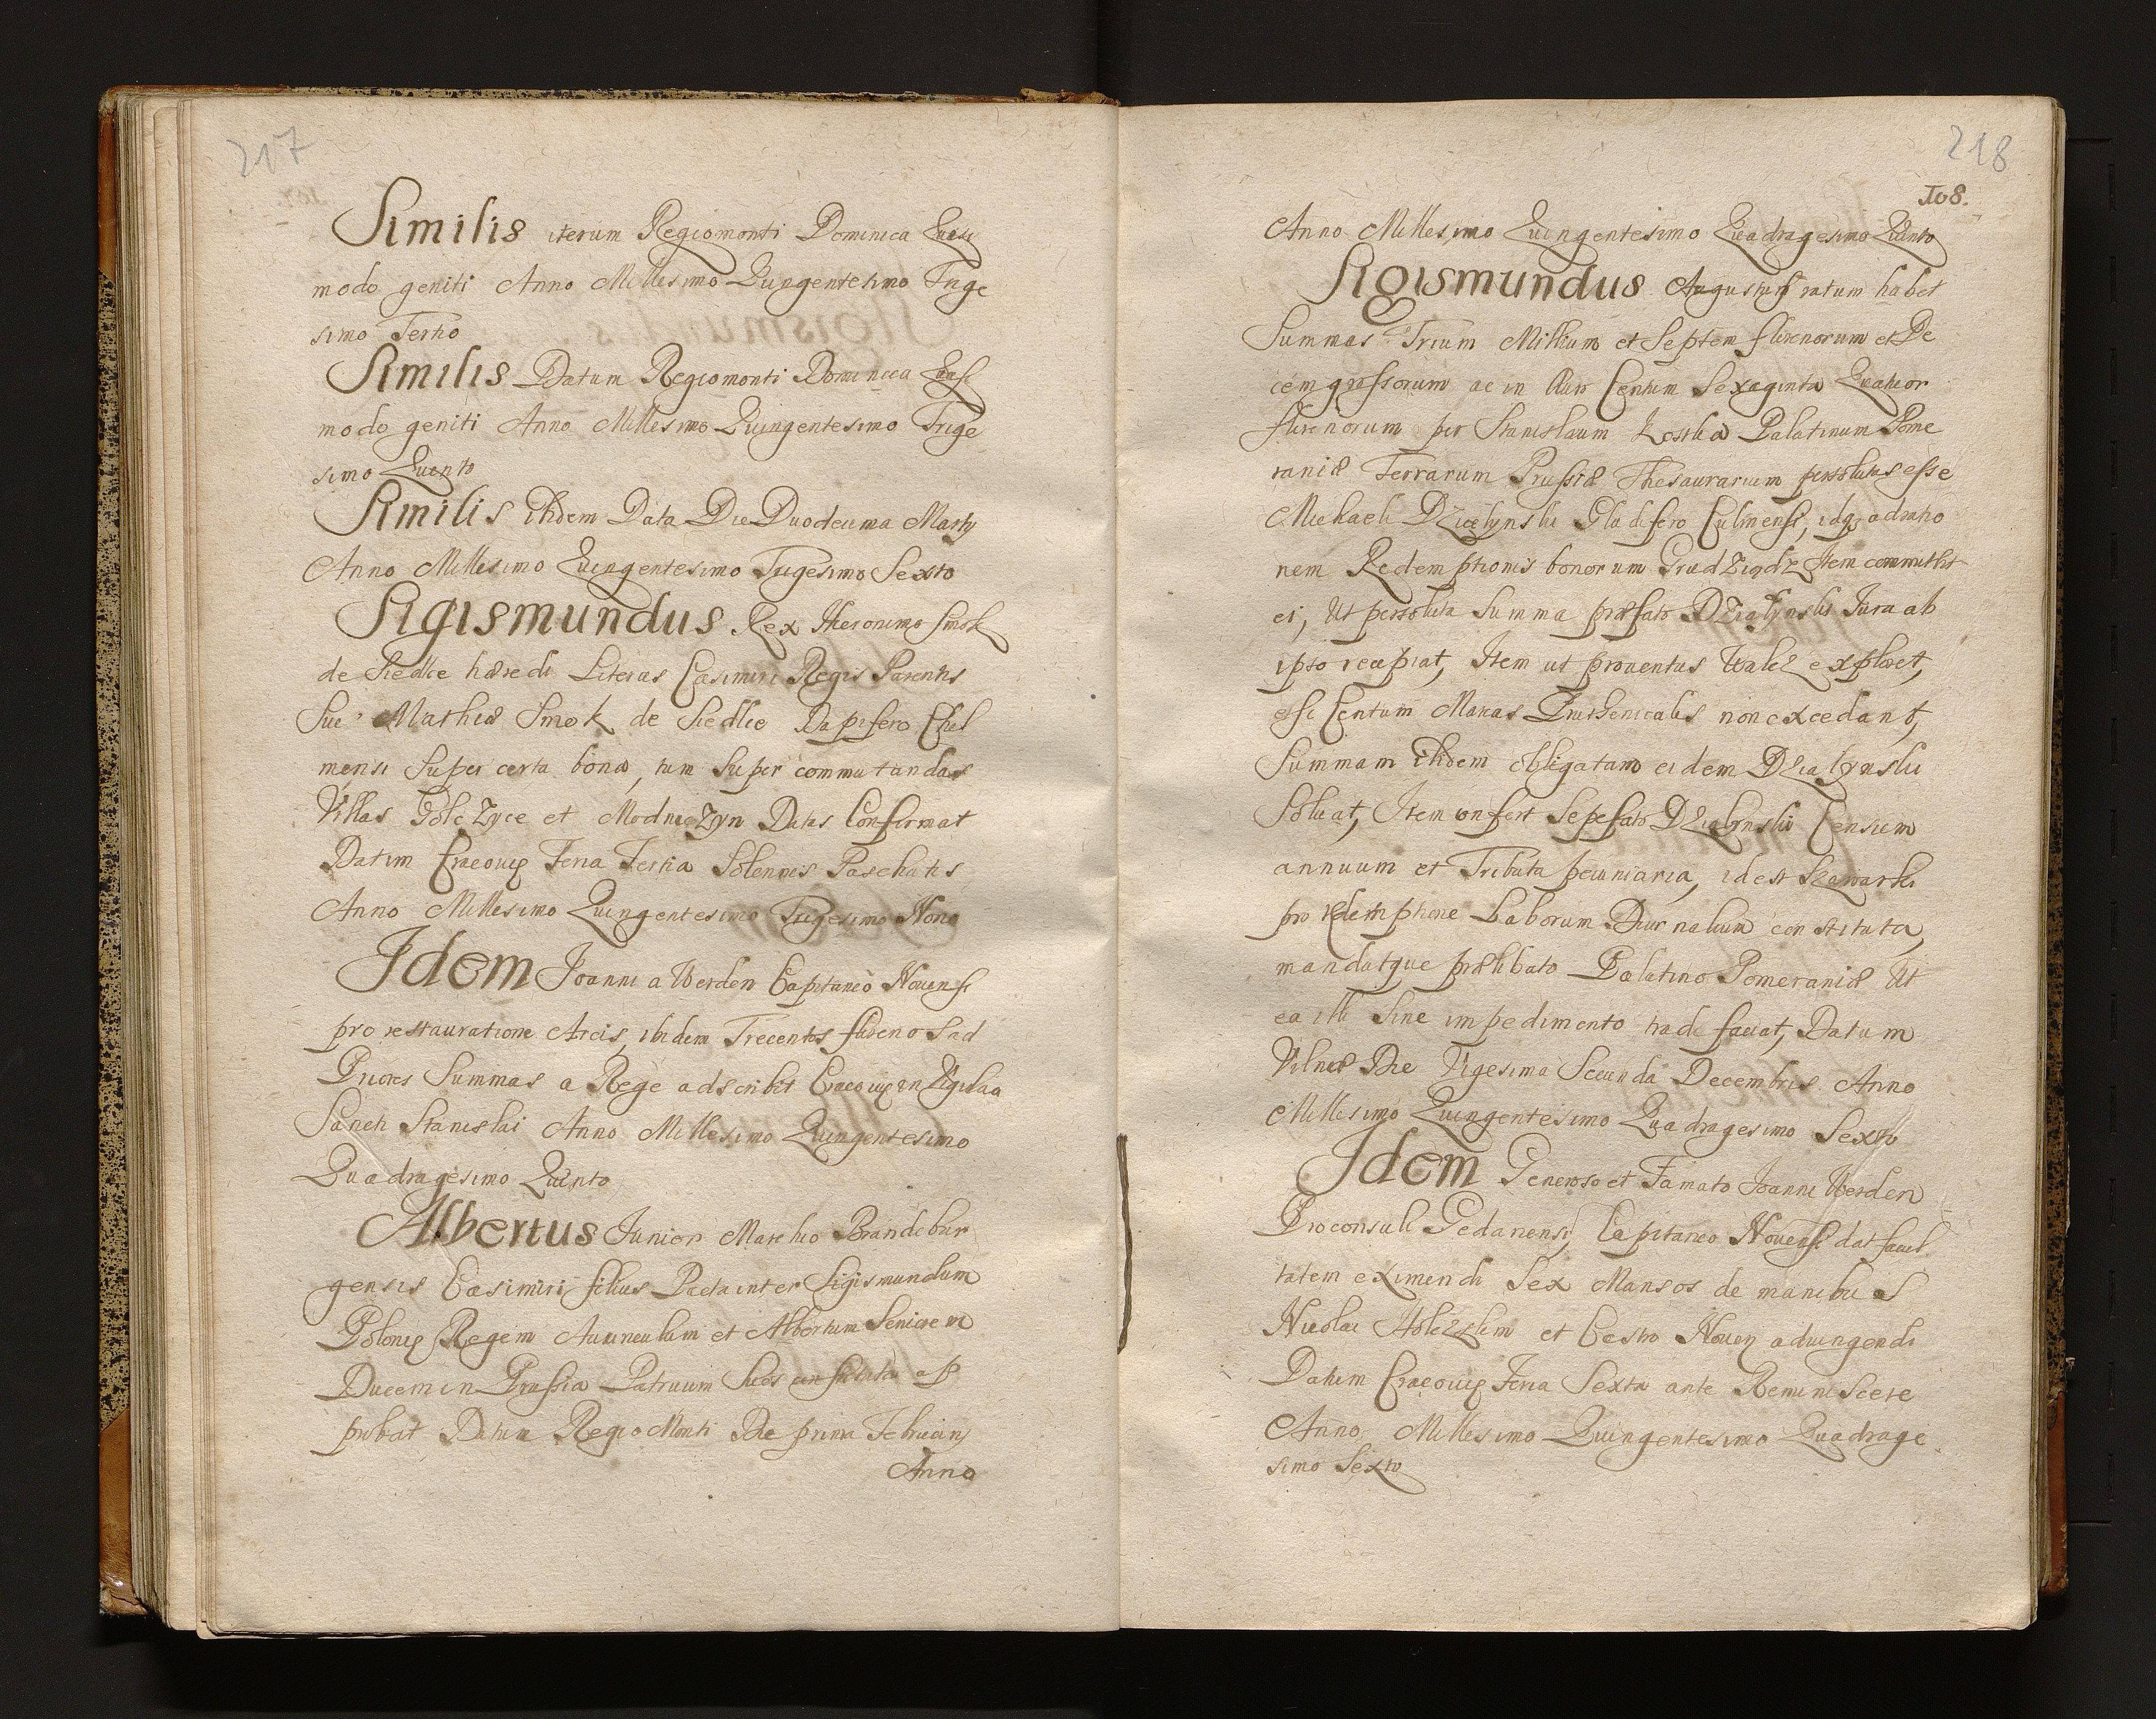 217
Similis iterum Regiomonti Dominica Quasi
modo geniti Anno Millesimo Quingentesimo Trige
simo Tertio
Similis Datum Regiomonti Dominica Quasi
modo geniti Anno Millesimo Quingentesimo Trige
simo Quinto
Similis ibidem Data Die Duodecima Martij
Anno Millesimo Quingentesimo Trigesimo Sexto
Sigismundus Rex Hieronimo Smok
de Siedlce hæredi Literas Casimiri Regis Parentis
Sui Mathiæ Smok de Siedlce Dapifero Chel
mensi super certa bona, tum super commutandas
Villas Golczyce et Modniczyn Datas Confirmat
Datum Cracouię Feria Tertia Solennis Paschatis
Anno Millesimo Quingentesimo Trigesimo Nono
Idem Joanni a Werden Capitaneo Nouensi
pro restauratione Arcis, ibidem Trecentos florenos ad
Priores Summas a Rege adscribit Cracouię in Vigilia
Sancti Stanislai Anno Millesimo Quingentesimo
Quadragesimo Quinto
Albertus Junior Marchio Brandebur
gensis Casimiri filius Pacta inter Sigismundum
Polonię Regem Auunculum et Albertum Seniorem
Ducem in Prussia Patruum Suos constituta ap
probat Datum Regio Monti Die prima Februarij
Anno
218
108.
Anno Millesimo Quingentesimo Quadragesimo Quinto
Sigismundus Augustus ratum habet
Summas Trium Millium et Septem florenorum et De
cem grossorum ac in Auro Centum Sexaginta Quatuor
florenorum per Stanislaum Kostka Palatinum Pome
raniæ Terrarum Prussiæ Thesaurarium persolutas esse
Michaeli Dzialynski Gladifero Culmensi, idq3 ad ratio
nem Redemptionis bonorum Grudziądz Item committit
ei, Ut persoluta Summa præfato Działynski Jura ab
ipso recipiat, Item ut prouentus Walcz exploret,
et si Centum Marcas Pruthenicales non excedant,
Summam ibidem obligatam eidem Dzialynski
Soluat, Item confert Sepefato Dzialynski Censum
annuum et Tributa pecuniaria, id est Szarwarki
pro redemptione Laborum Diurnalium constituta,
mandatque prælibato Palatino Pomeraniæ Ut
ea illi Sine impedimento tradi faciat, Datum
Vilnæ Die Vigesima Secunda Decembris Anno
Millesimo Quingentesimo Quadragesimo Sexto
Idem Generoso et Famato Joanni Werden
Proconsuli Gedanensi, Capitaneo Nouensi dat facul
tatem eximendi Sex Mansos de manibus
Nicolai et Castro Nouen adiungendi
Datum Cracouię Feria Sexta ante Reminiscere
Anno Millesimo Quingentesimo Quadrage
simo Sexto